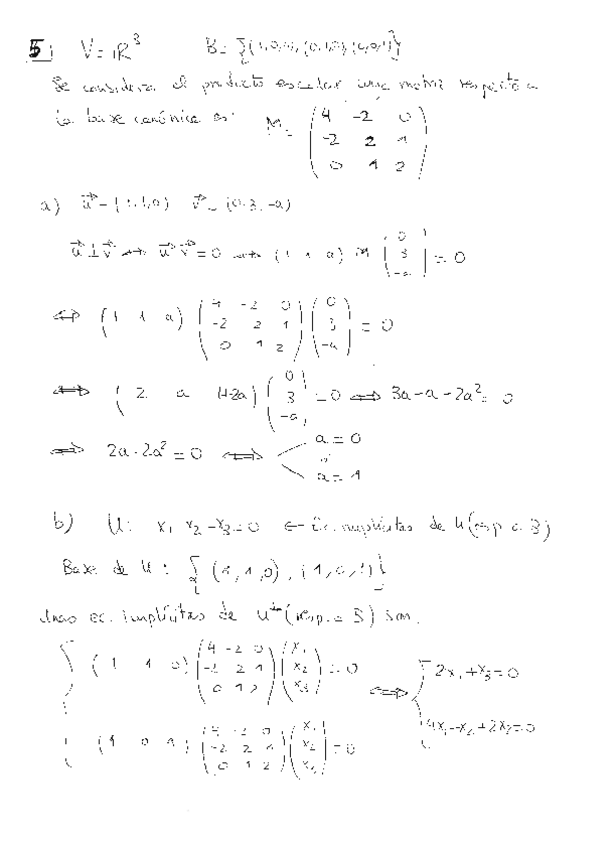 5) V = ℝ³ B = {(1,0,0), (0,1,0), (0,0,1)}
Se considera el producto escalar cuya matriz respecto a
la base canónica es: M = (4 -2 0
-2 2 1
0 1 2)
a) u⃗ = (1,1,a) v⃗ = (0,3,-a)
u⃗ ⊥ v⃗ ⟺ u⃗ v⃗ = 0 ⟺ (1 1 a) M (0 3 -a) = 0
⟺ (1 1 a) (4 -2 0
-2 2 1
0 1 2) (0 3 -a) = 0
⟺ (2 a 1+2a) (0 3 -a) = 0 ⟺ 3a - a - 2a² = 0
⟺ 2a - 2a² = 0 ⟺ a = 0
o
a = 1
b) U: x₁ x₂ - x₃ = 0 ← Ec. implícitas de U (resp a B)
Base de U: {(1,1,0), (1,0,1)}
Unas ec. implícitas de U⊥ (resp. a B) son:
{ (1 1 0) (4 -2 0
-2 2 1
0 1 2) (x₁ x₂ x₃) = 0 ⟺ { 2x₁ + x₃ = 0
(1 0 1) (4 -2 0
-2 2 1
0 1 2) (x₁ x₂ x₃) = 0 4x₁ - x₂ + 2x₃ = 0